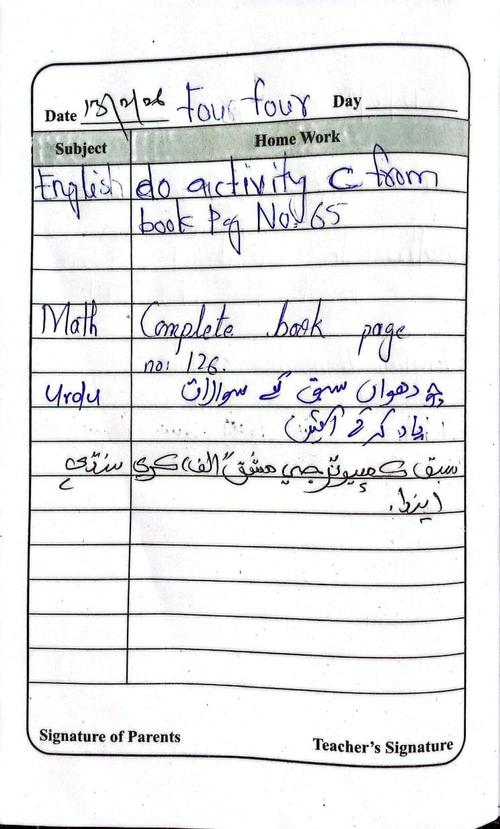 Date 13/2/26 Four four Day
Subject Home Work
English do activity C from
book Pg No: 65
Math Complete book page
no: 126.
Urdu دھواں سبق کے سوالات
یاد کر کے آئیں
سنڌي سبق ڪمپيوٽر جي مشق "الف" ڪري
ايندا.
Signature of Parents Teacher's Signature